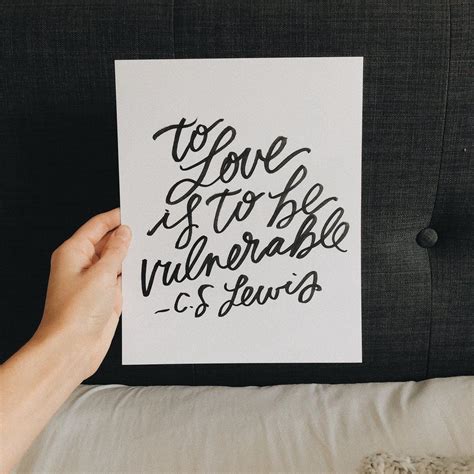 to
Love
is to be
vulnerable
- C.S Lewis